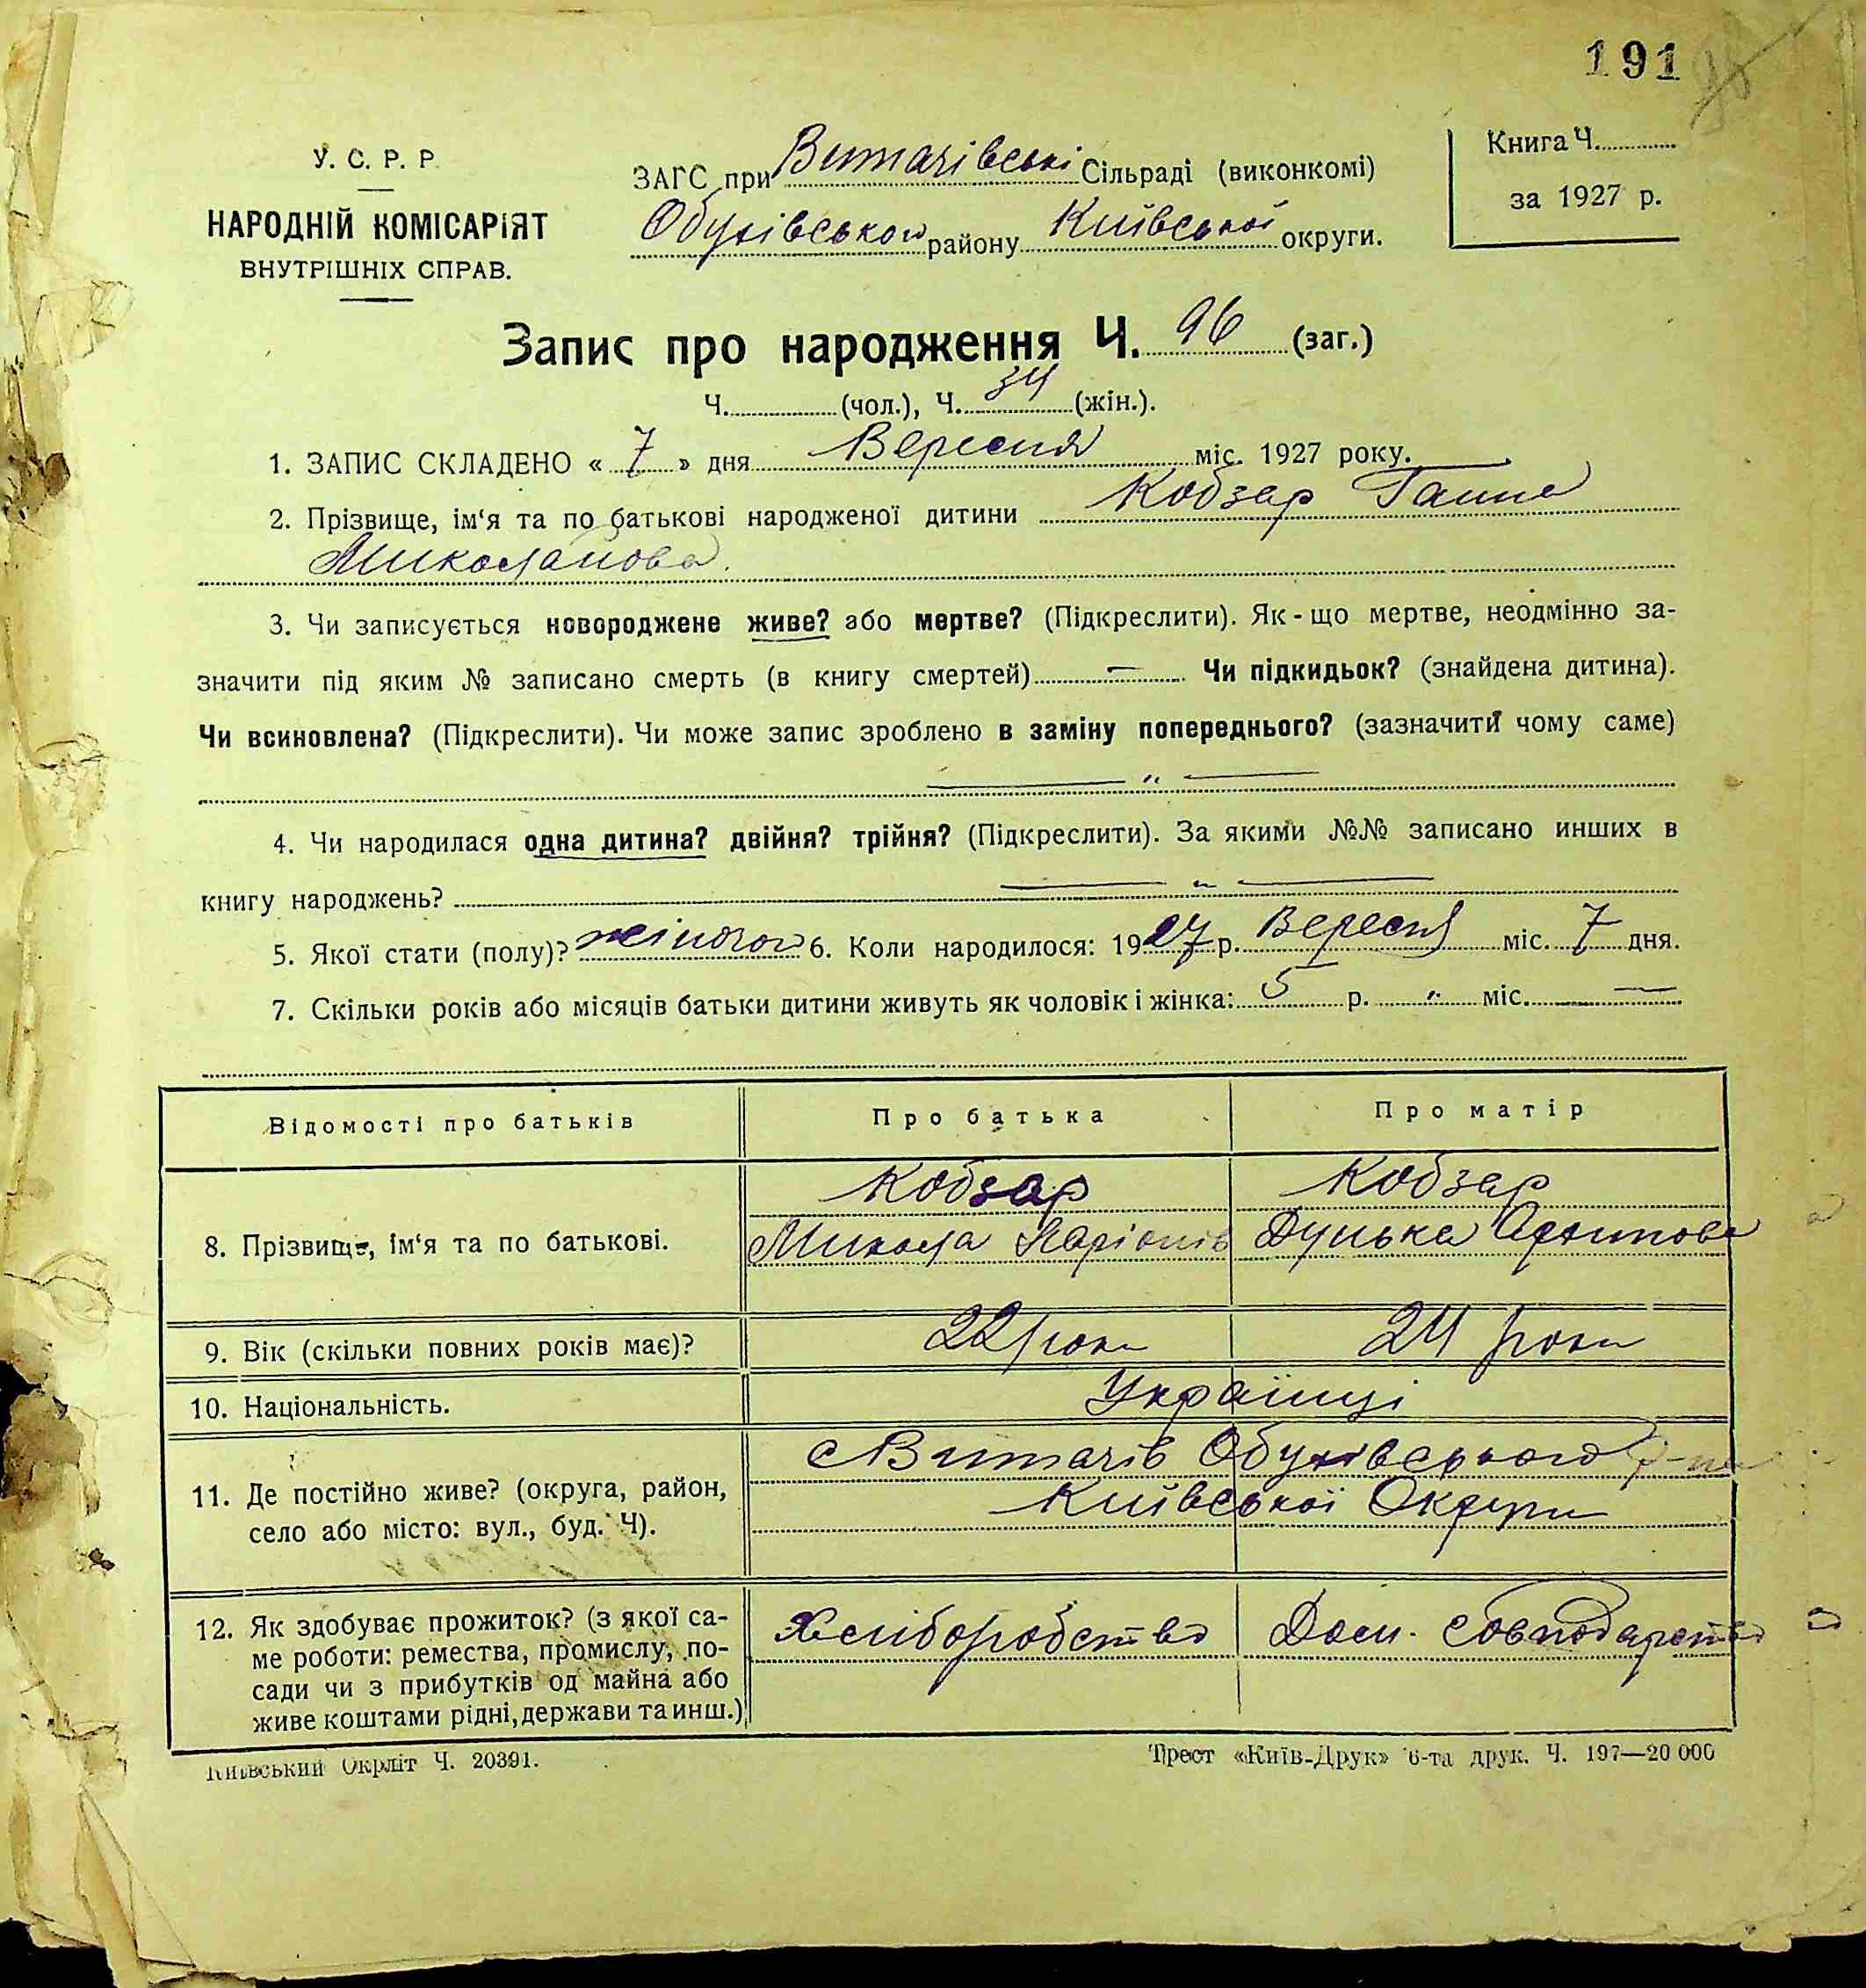 191
У. С. Р. Р.
НАРОДНІЙ КОМІСАРІЯТ
ВНУТРІШНІХ СПРАВ.
ЗАГС при Витачівські Сільраді (виконкомі)
Обухівського району Київської округи.
Книга Ч.
за 1927 р.
Запис про народження Ч. 96 (заг.)
Ч. (чол.), Ч. 34 (жін.).
1. ЗАПИС СКЛАДЕНО « 7 » дня Вересня міс. 1927 року.
2. Прізвище, ім'я та по батькові народженої дитини Кобзар Ганна
Миколайова.
3. Чи записується новороджене живе? або мертве? (Підкреслити). Як - що мертве, неодмінно за-
значити під яким № записано смерть (в книгу смертей) — Чи підкидьок? (знайдена дитина).
Чи всиновлена? (Підкреслити). Чи може запис зроблено в заміну попереднього? (зазначити чому саме)
— „ —
4. Чи народилася одна дитина? двійня? трійня? (Підкреслити). За якими №№ записано инших в
книгу народжень? — „ —
5. Якої стати (полу)? жіночого 6. Коли народилося: 1927 р. Вересня міс. 7 дня.
7. Скільки років або місяців батьки дитини живуть як чоловік і жінка: 5 р. „ міс. —
Відомості про батьків Про батька Про матір
8. Прізвище, ім'я та по батькові. Кобзар Кобзар
Микола Ларіонів Дунька
9. Вік (скільки повних років має)? 22 роки 24 роки
10. Національність. Українці
11. Де постійно живе? (округа, район,
село або місто: вул., буд. Ч).
с Витачів Обухівського р-на
Київської Округи
12. Як здобуває прожиток? (з якої са-
ме роботи: ремества, промислу, по-
сади чи з прибутків од майна або
живе коштами рідні, держави та инш.)
Хліборобство Дом.
Київський Окрліт Ч. 20391.
Трест «Київ-Друк» 6-та друк. Ч. 197—20 000